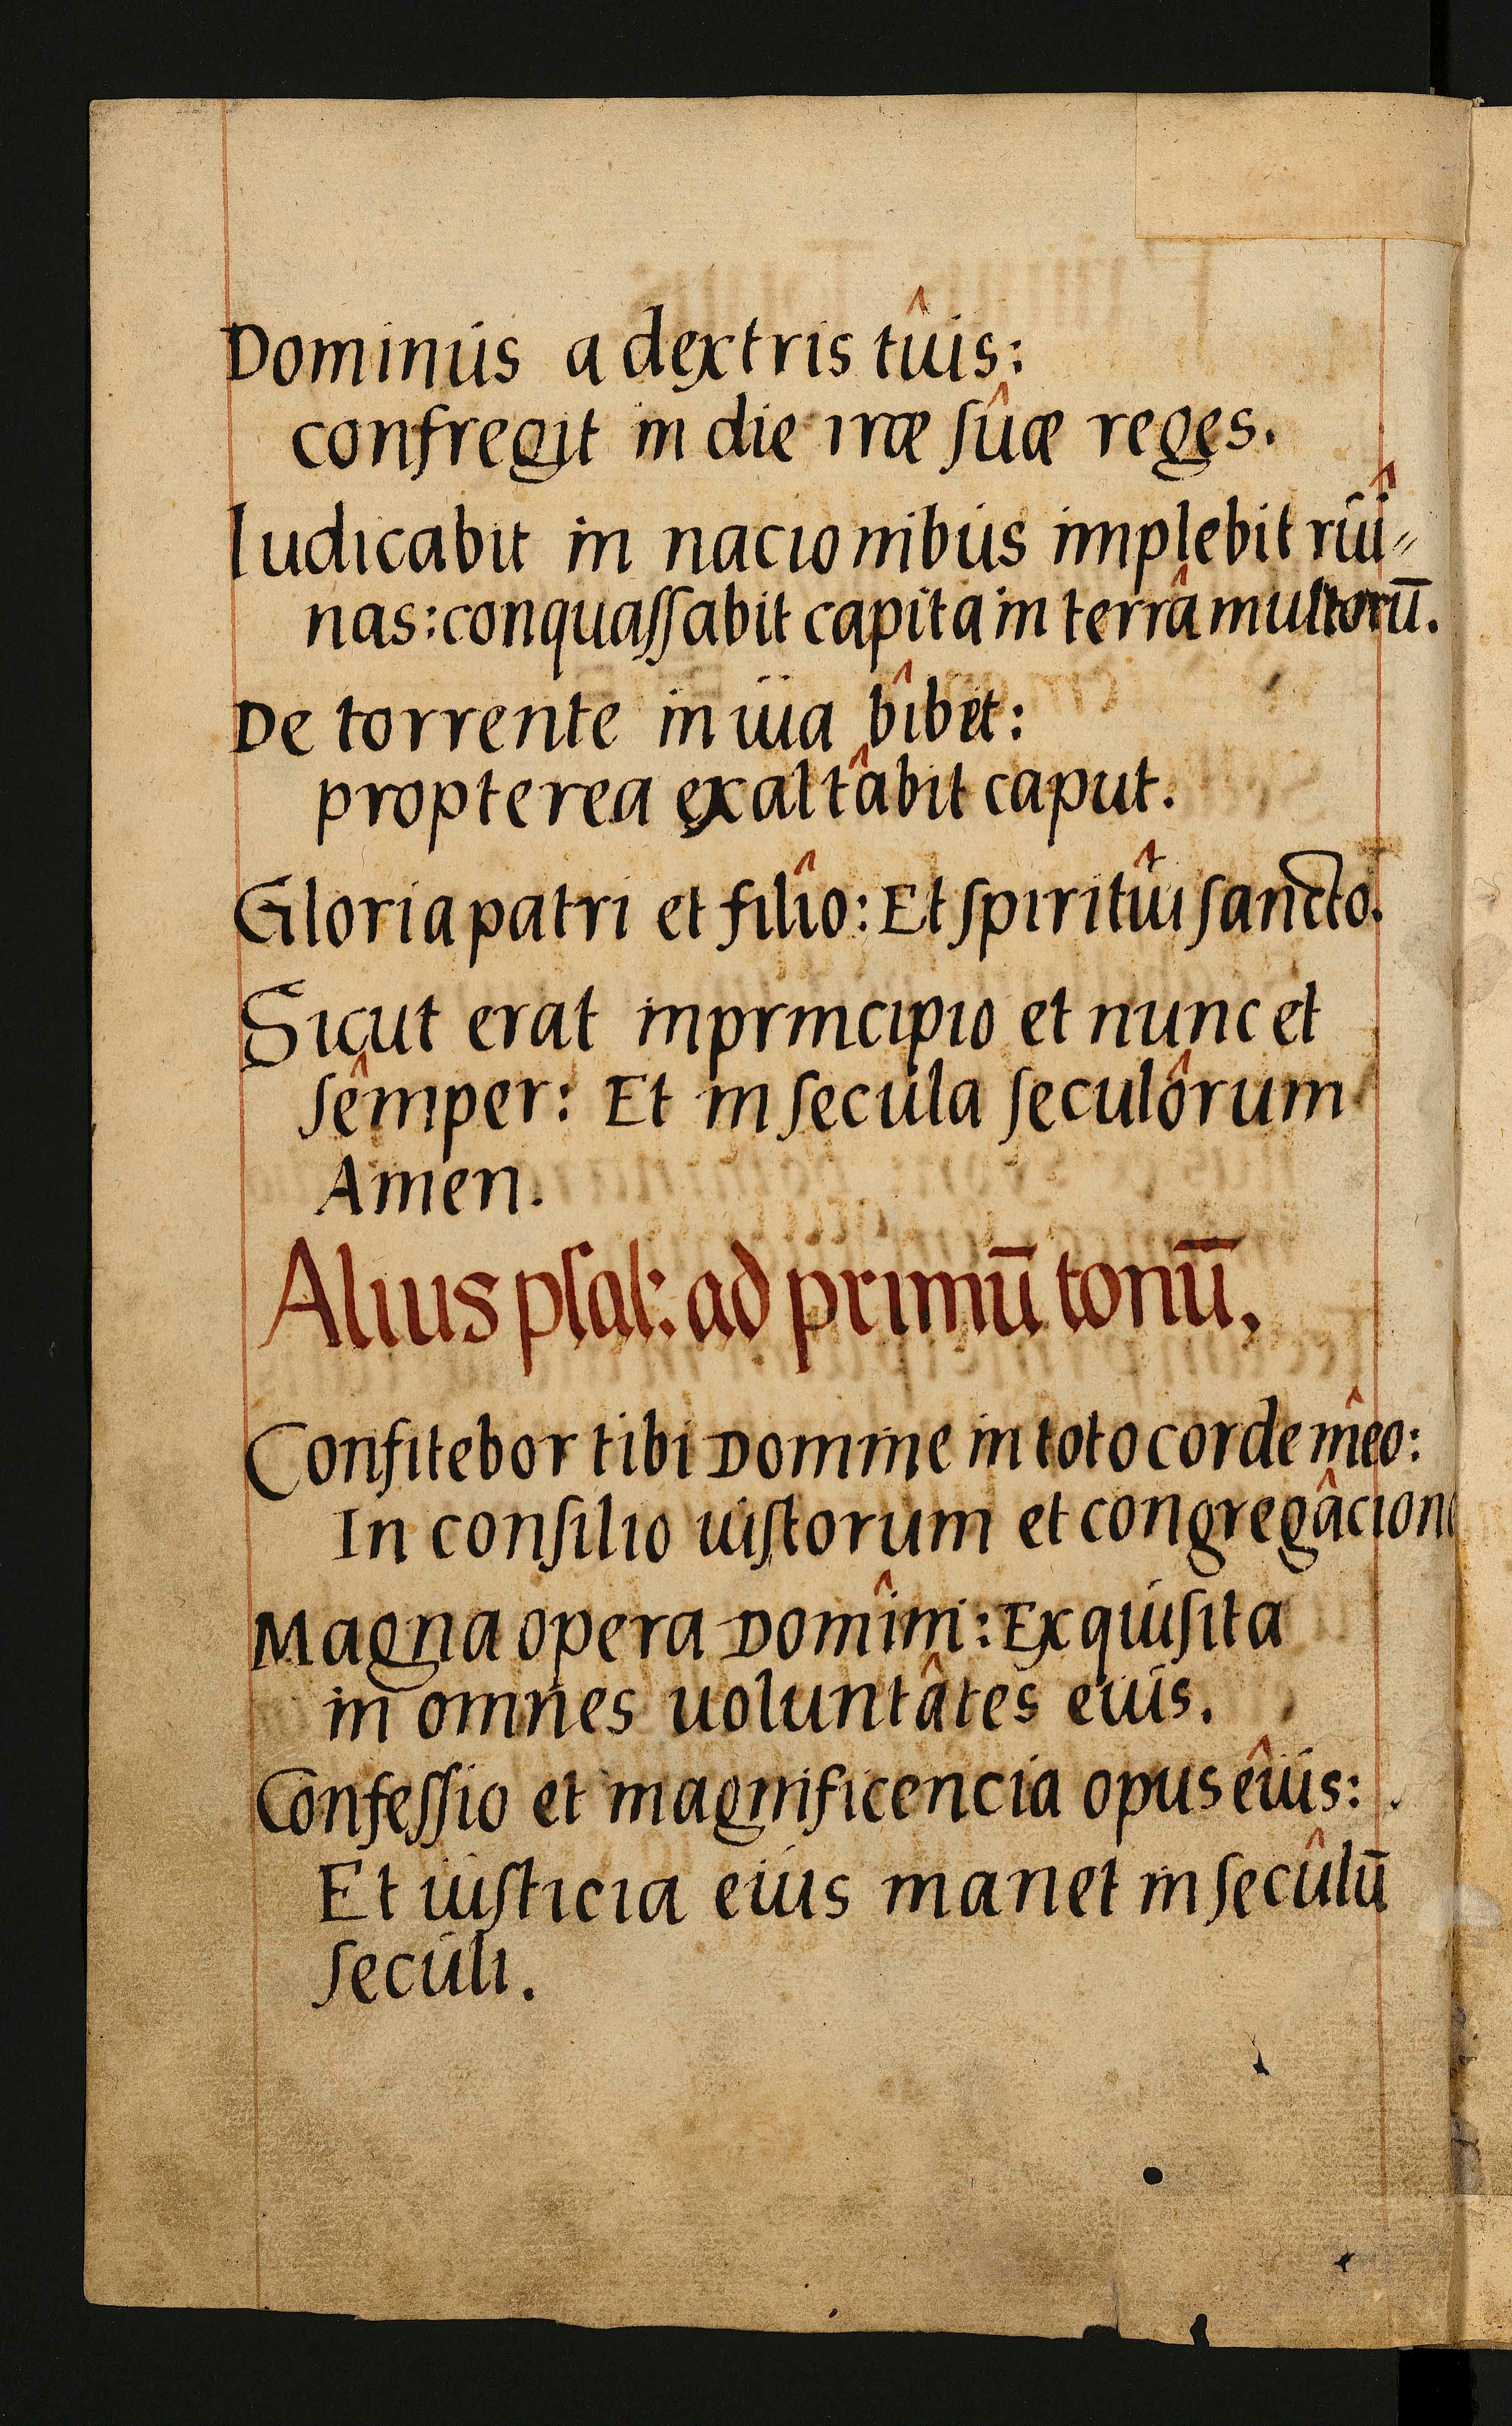 Dominus a dextris tûis:
confregit in die iræ ſûæ reges.
Iudicabit in nacionibus implebit ruî⸗
nas: conquaſſabit capita in terrâ multorū.
De torrente in uia bîbet:
propterea exaltâbit caput.
Gloria patri et filîo: Et ſpiritûi ſancto.
Sicut erat in principio et nunc et
ſêmper: Et in ſecula ſeculôrum
Amen.
Alius pſal: ad primū tonū.
Confitebor tibi Domine in toto corde mêo:
In conſilio iuſtorum et congregâcione
Magna opera Domîni: Exquiſita
in omnes uoluntâtes eius.
Confeſſio et magnificencia opus êius:
Et iuſticia eius manet in ſecûlū
ſeculi.